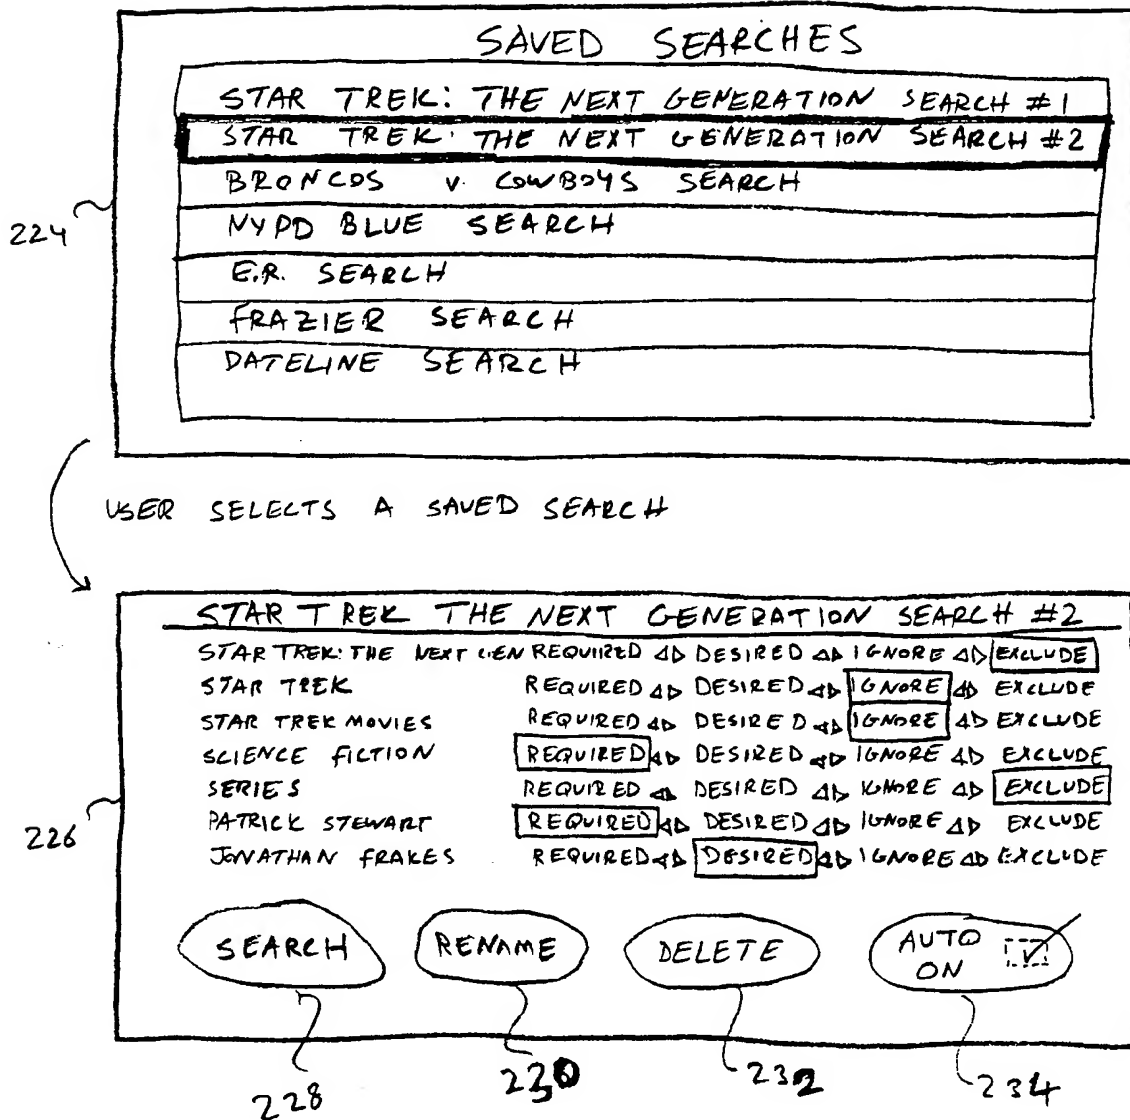 SAVED SEARCHES
STAR TREK: THE NEXT GENERATION SEARCH #1
STAR TREK: THE NEXT GENERATION SEARCH #2
BRONCOS v. COWBOYS SEARCH
224
NYPD BLUE SEARCH
E.R. SEARCH
FRAZIER SEARCH
DATELINE SEARCH
USER SELECTS A SAVED SEARCH
STAR TREK THE NEXT GENERATION SEARCH #2
STAR TREK: THE NEXT GEN REQUIRED ◁▷ DESIRED ◁▷ IGNORE ◁▷ EXCLUDE
STAR TREK REQUIRED ◁▷ DESIRED ◁▷ IGNORE ◁▷ EXCLUDE
STAR TREK MOVIES REQUIRED ◁▷ DESIRED ◁▷ IGNORE ◁▷ EXCLUDE
SCIENCE FICTION REQUIRED ◁▷ DESIRED ◁▷ IGNORE ◁▷ EXCLUDE
SERIES REQUIRED ◁▷ DESIRED ◁▷ IGNORE ◁▷ EXCLUDE
226
PATRICK STEWART REQUIRED ◁▷ DESIRED ◁▷ IGNORE ◁▷ EXCLUDE
JONATHAN FRAKES REQUIRED ◁▷ DESIRED ◁▷ IGNORE ◁▷ EXCLUDE
SEARCH RENAME DELETE AUTO ON
228 230 232 234